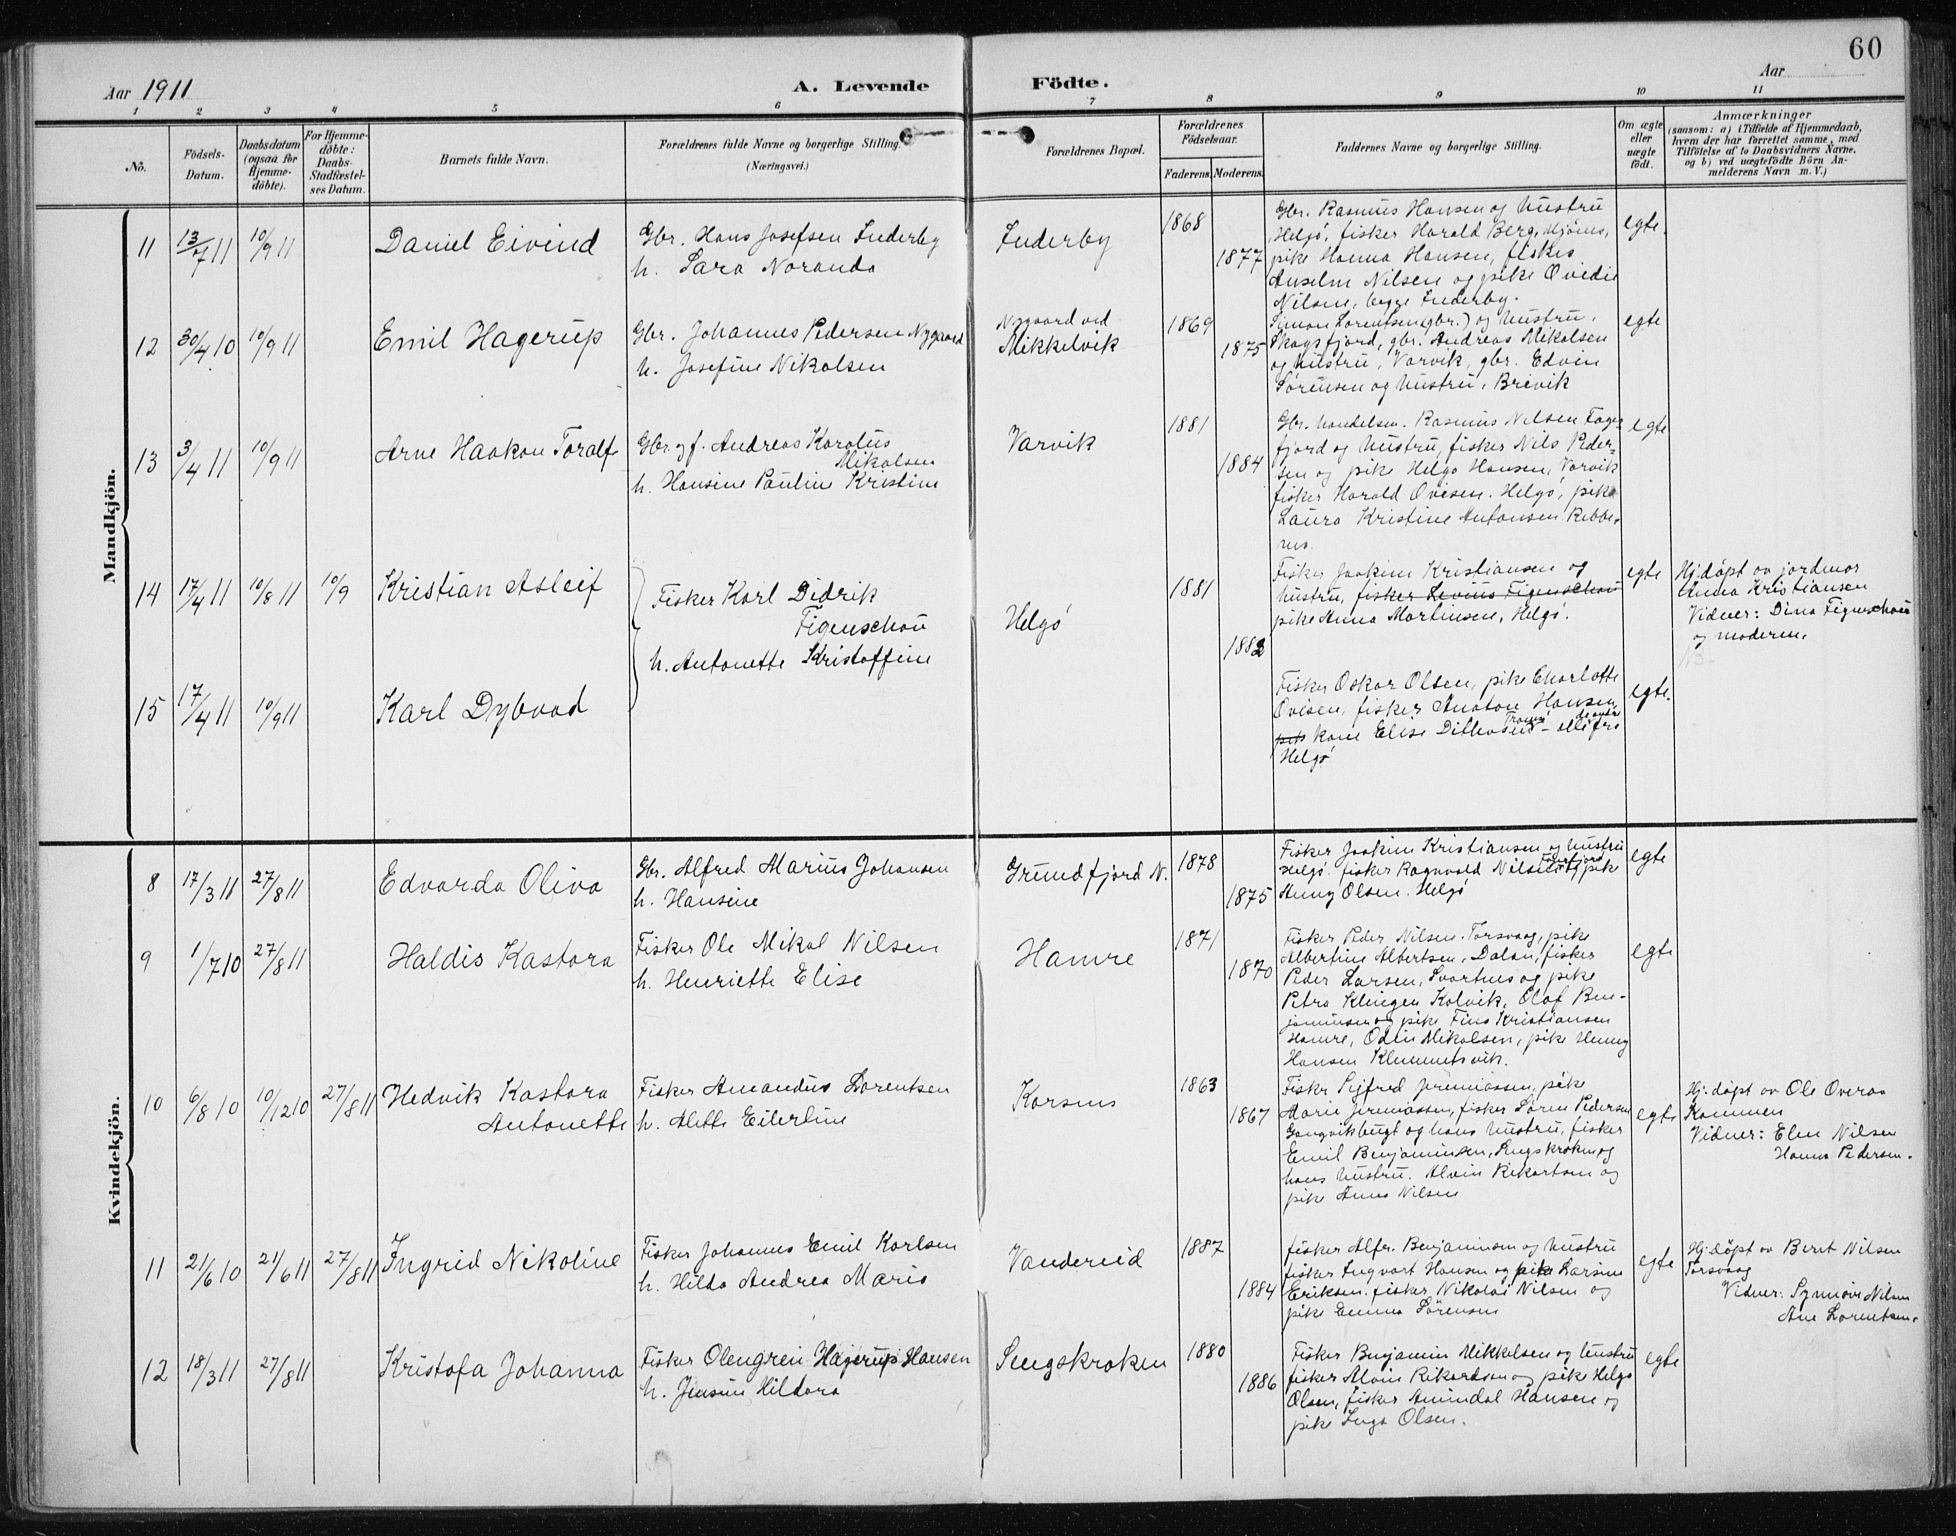 60
Aar 1911
A. Levende Födte.
Aar
1 2 3 4 5 6 7 8 9 10 11
No.
Födsels-Datum.
Daabsdatum (ogsaa for Hjemme-döbte).
For Hjemme-döbte: Daabs-Stadfæstel-ses Datum.
Barnets fulde Navn.
Forældrenes fulde Navne og borgerlige Stilling.
(Næringsvei.)
Forældrenes Bopæl.
Forældrenes Födselsaar.
Faderens. Moderens.
Faddernes Navne og borgerlige Stilling.
Om ægte eller uægte födt.
Anmærkninger
(saasom: a) i Tilfælde af Hjemmedaab,
hvem der har forrettet samme, med
Tilföielse af to Daabsvidners Navne,
og b) ved uægtefödte Börn An-
melderens Navn m. V.)
Mandkjön.
11 13/7 11 10/9 11 Daniel Eivind
Gbr. Hans Josefsen Inderby
h. Sara Noranda
Inderby
1868
1877
Gbr. Rasmus Hansen og hustru
Helgö, fisker Harald Berg, Mjönes,
pike Hanna Hansen, fisker
Anselm Nilsen og pike Ovedie
Nilsen, begge Inderby.
egte.
12 30/4 10 10/9 11 Emil Hagerup
Gbr. Johannes Pedersen Nygaard
h. Josefine Nikolsen
Nygaard ved
Mikkelvik
1869
1875
Simon Lorentsen (gbr.) og hustru,
Skogsfjord, gbr. Andreas Mikalsen
og hustru, Varvik, gbr. Edvin
Sörensen og hustru, Breivik
egte
13 3/4 11 10/9 11 Arne Haakon Toralf
Gbr. og f. Andreas Karolus
Mikalsen
h. Hansine Pauline Kristine
Varvik
1881
1884
Gbr. handelsm. Rasmus Nilsen Fager
fjord og hustru, fisker Nils Peder-
sen og pike Helga Hansen, Varvik
fisker Harald Ovesen. Helgö, pike
Laura Kristine Antonsen Rebbe-
nes.
egte
14 17/4 11 10/8 11 10/9 Kristian Asleif
Fisker Karl Didrik
Figenschou
h. Antonette Kristoffine
Helgö
1881
1882
Fisker Joakim Kristiansen og
hustru, fisker Levius Figenschou
pike Anna Martinsen, Helgö.
egte
Hj.döpt av jordmor
Anna Kristiansen
Vidner: Dina Figenschou
og moderen.
15 17/4 11 10/9 11 Karl Dybvad
Fisker Oskar Olsen, pike Charlotte
Ovesen, fisker Anaton Hansen,
kone Elise Ditlevsen Tromsö – de andre alle fra
Helgö
egte.
Kvindekjön.
8 17/3 11 27/8 11 Edvarda Oliva
Gbr. Alfred Marius Johansen
h. Hansine
Grundfjord N.
1878
1875
Fisker Joakim Kristiansen og hustru
Helgö. fisker Ragnvald Nilsen, pike
Anny Olsen. Helgö
egte
9 1/7 10 27/8 11 Haldis Kastora
Fisker Ole Mikal Nilsen
h. Henriette Elise
Hamre
1871
1870
Fisker Peder Nilsen. Torsvaag, pike
Albertine Albertsen, Dalen, fisker
Peder Larsen, Svartnes og pike
Petra Klingen Kalvik, Olaf Ben-
jaminsen og pike Fina Kristiansen
Hamre, Odin Mikalsen, pike Henny
Hansen Klemmetsvik.
egte
10 6/8 10 10/12 10 27/8 11 Hedvik Kastora
Antonette
Fisker Amandus Lorentsen
h. Alette Eilertine
Korsnes
1863
1867
Fisker Sigfred Jeremiassen, pike
Marie Jeremiassen, fisker Sören Pedersen
Gangvikbugt og hans hustru, fisker
Emil Benjaminsen, Sengskroken og
hans hustru. Alvin Rikartsen og
pike Anna Nilsen
egte
Hj.döpt av Ole Overaa
Kammen
Vidner: Elen Nilsen
Hanna Pedersen.
11 21/6 10 21/6 11 27/8 11 Ingrid Nikoline
Fisker Johannes Emil Karlsen
h. Hilda Andrea Maria
Vandereid
1887
1884
fisker Alfr. Benjaminsen og hustru
fisker Ingvart Hansen og pike Larsine
Eriksen. fisker Nikolai Nilsen og
pike Emma Sörensen
egte
Hj.döpt av Bernt Nilsen
Torsvaag
Vidner: Synnöve Nilsen
Ane Lorentsen.
12 18/3 11 27/8 11 Kristofa Johanna
Fisker Olengren Hagerup Hansen
h. Jensine Hildora
Sengskroken
1880
1886
Fisker Benjamin Mikkelsen og hustru
fisker Alvin Rikardsen og pike Helga
Olsen, fisker Amindal Hansen og
pike Inga Olsen.
egte